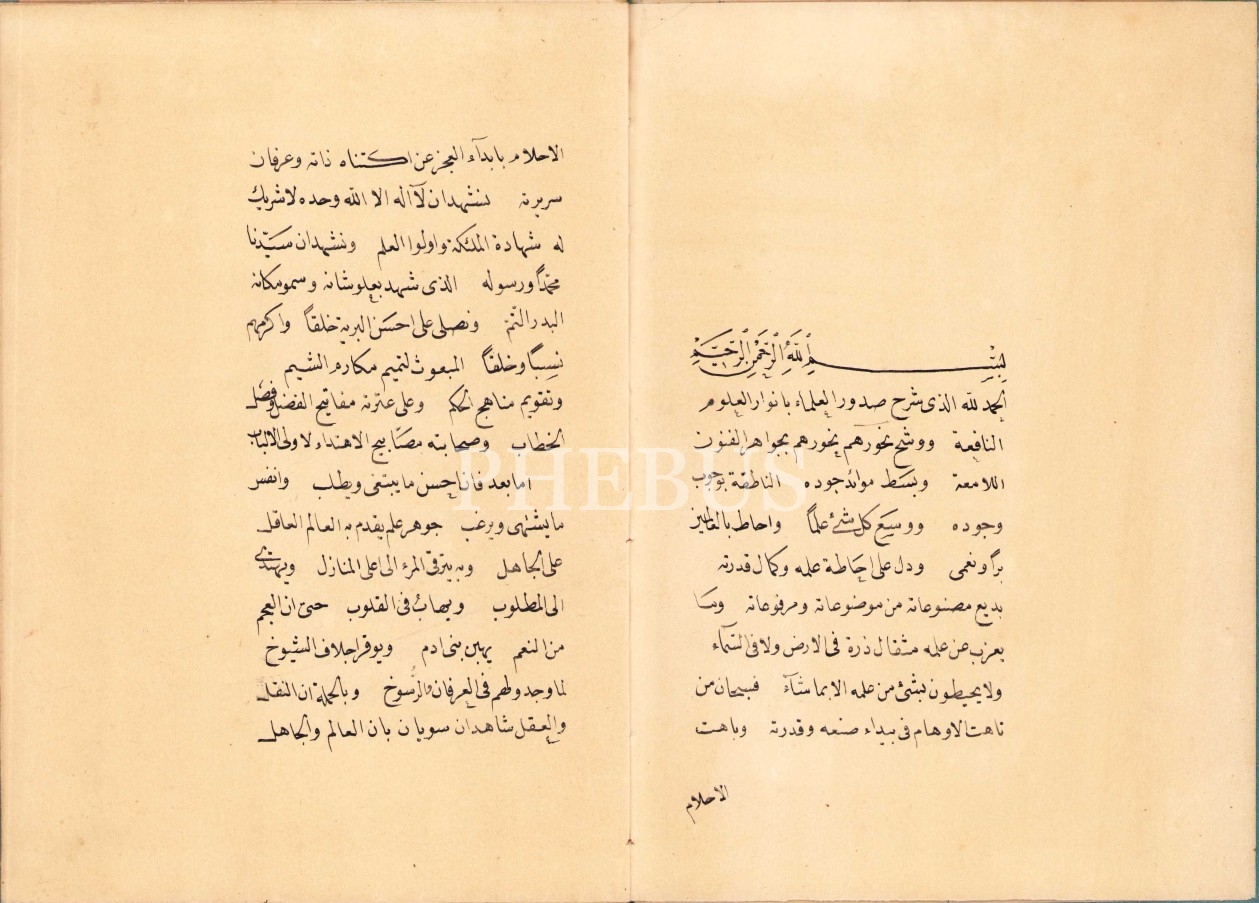 بِسْمِ اللّٰهِ الرَّحْمٰنِ الرَّحِيْمِ
الحمد لله الذى شرح صدور العلماء بانوار العلوم
النافعة ووشح نحورهم بجواهر الفنون
اللامعة وبسط موائد جوده الناطقة بوجوب
وجوده ووسع كل شئ علماً واحاط بالعالمين
براً ونعمى ودل على احاطة علمه وكمال قدرته
بديع مصنوعاته من موضوعاته ومرفوعاته وما
يعزب عن علمه مثقال ذرة فى الارض ولا فى السّمآء
ولا يحيطون بشئ من علمه الا بما شآء فسبحان من
تاهت الاوهام فى بيداء صنعه وقدرته وباهت
الاحلام
الاحلام بابدآء العجز عن اكتناه ذاته وعرفان
سريرته نشهد ان لآ اله الا الله وحده لا شريك
له شهادة الملئكة واولوا العلم ونشهد ان سيّدنا
محمّداً ورسوله الذى شهد بعلو شانه وسمو مكانه
البدر التّم ونصلى على احسن البرية خلقاً واكرمهم
نسباً وخلقاً المبعوث لتتميم مكارم الشيم
وتقويم مناهج الحكم وعلى عترته مفاتيح الفضل وفصل
الخطاب وصحابته مصابيح الاهتداء لاولى الالباب
اما بعد فان احسن ما يبتغى ويطلب وانفس
ما يشتهى ويرغب جوهر علم يقدم به العالم العاقل
على الجاهل وبه يترقى المرء الى اعلى المنازل ويهتدى
الى المطلوب ويهاب فى القلوب حتى ان العجم
من النعم يهبن بنى ادم ويوقر اجلاف الشيوخ
لما وجد ولهم فى العرفان والرسوخ وبالجملة ان النقل
والعقل شاهدان سويان بان العالم والجاهل
PHEBUS